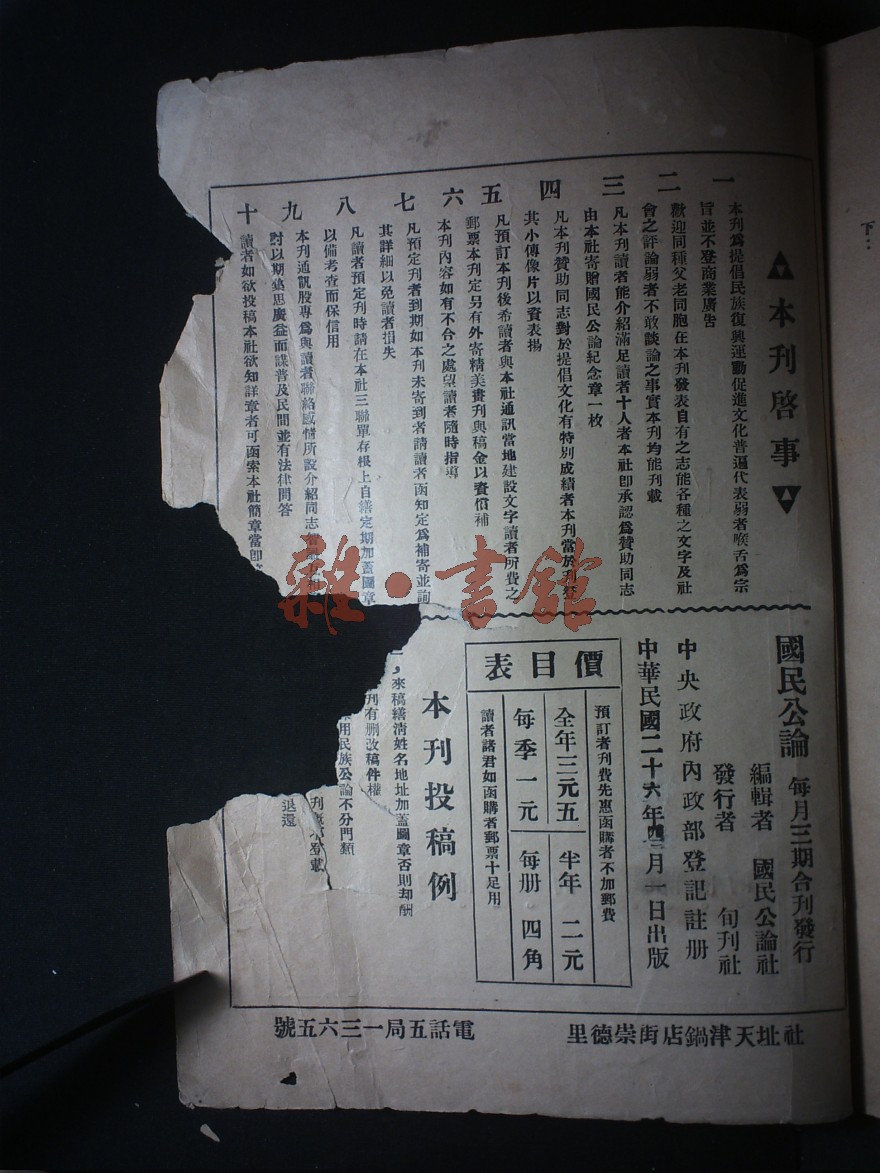 ▲本刊啓事▼
一
本刊爲提倡民族復興運動促進文化普遍代表弱者喉舌爲宗
旨並不登商業廣告
二
歡迎同種父老同胞在本刊發表自有之志能各種之文字及社
會之評論弱者不敢談論之事實本刊均能刊載
三
凡本刊讀者能介紹滿足讀者十人者本社卽承認爲贊助同志
由本社寄贈國民公論紀念章一枚
四
凡本刊贊助同志對於提倡文化有特別成績者本刊當於刊登
其小傳像片以資表揚
五
凡預訂本刊後希讀者與本社通訊當地建設文字讀者所費之
郵票本刊定另有外寄精美畫刊與稿金以資償補
六
本刊內容如有不合之處望讀者隨時指導
七
凡預定刊者到期如本刊未寄到者請讀者函知定爲補寄並詢
其詳細以免讀者損失
八
凡讀者預定刊時請在本社三聯單存根上自繕定期加蓋圖章
以備考查而保信用
九
本刊通訊股專爲與讀者聯絡感情所設介紹同志
討以期集思廣益而謀普及民間並有法律問答
十
讀者如欲投稿本社欲知詳章者可函索本社簡章當卽
國民公論 每月三期合刊發行
編輯者 國民公論社
發行者 旬刊社
中央政府內政部登記註册
中華民國二十六年 月一日出版
價目表
預訂者刊費先惠函購者不加郵費
全年三元五 半年 二元
每季一元 每册 四角
讀者諸君如函購者郵票十足用
本刊投稿例
一，來稿繕淸姓名地址加蓋圖章否則却酬
刊有删改稿件權
用民族公論不分門類
登載
退還
社址天津鍋店街崇德里
電話五局一三六五號
下：
雜·書館